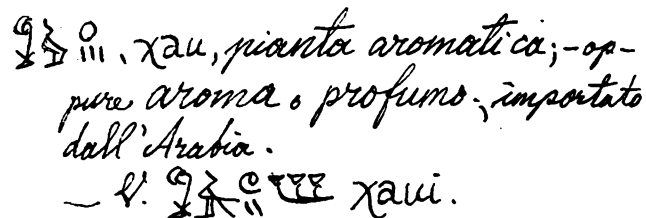 , χau, pianta aromatica; – op-
pure aroma o profumo; importato
dall'Arabia.
— V. χaui.